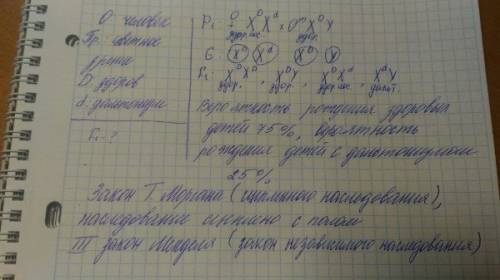 О. человек
Пр.: цветное
зрение
D здоров
d. дальтонизм
F₁ - ?
P: ♀ X^D X^d × ♂ X^D Y
здор. нос. здор.
G: X^D X^d X^D Y
F₁: X^D X^D, X^D Y, X^D X^d, X^d Y
здор. здор. здор. нос. дальт.
Вероятность рождения здоровых
детей 75%, вероятность
рождения детей с дальтонизмом
25%
Закон Т. Моргана (сцепленного наследования),
наследование сцеплено с полом
III закон Менделя (закон независимого наследования)